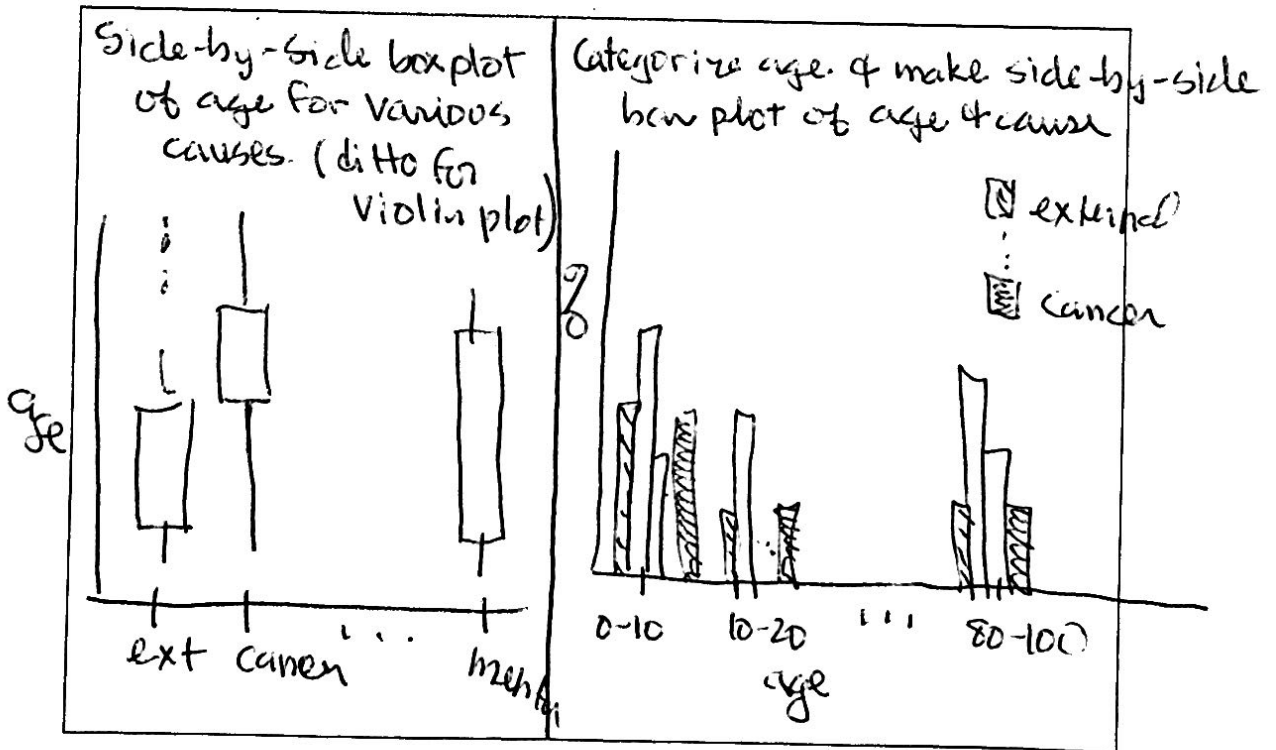 Side-by-Side boxplot
of age for various
causes. (ditto for
Violin plot)
age
ext cancer ... mental
Categorize age & make side-by-side
bar plot of age & cause
external
cancer
%
0-10 10-20 ... 80-100
age